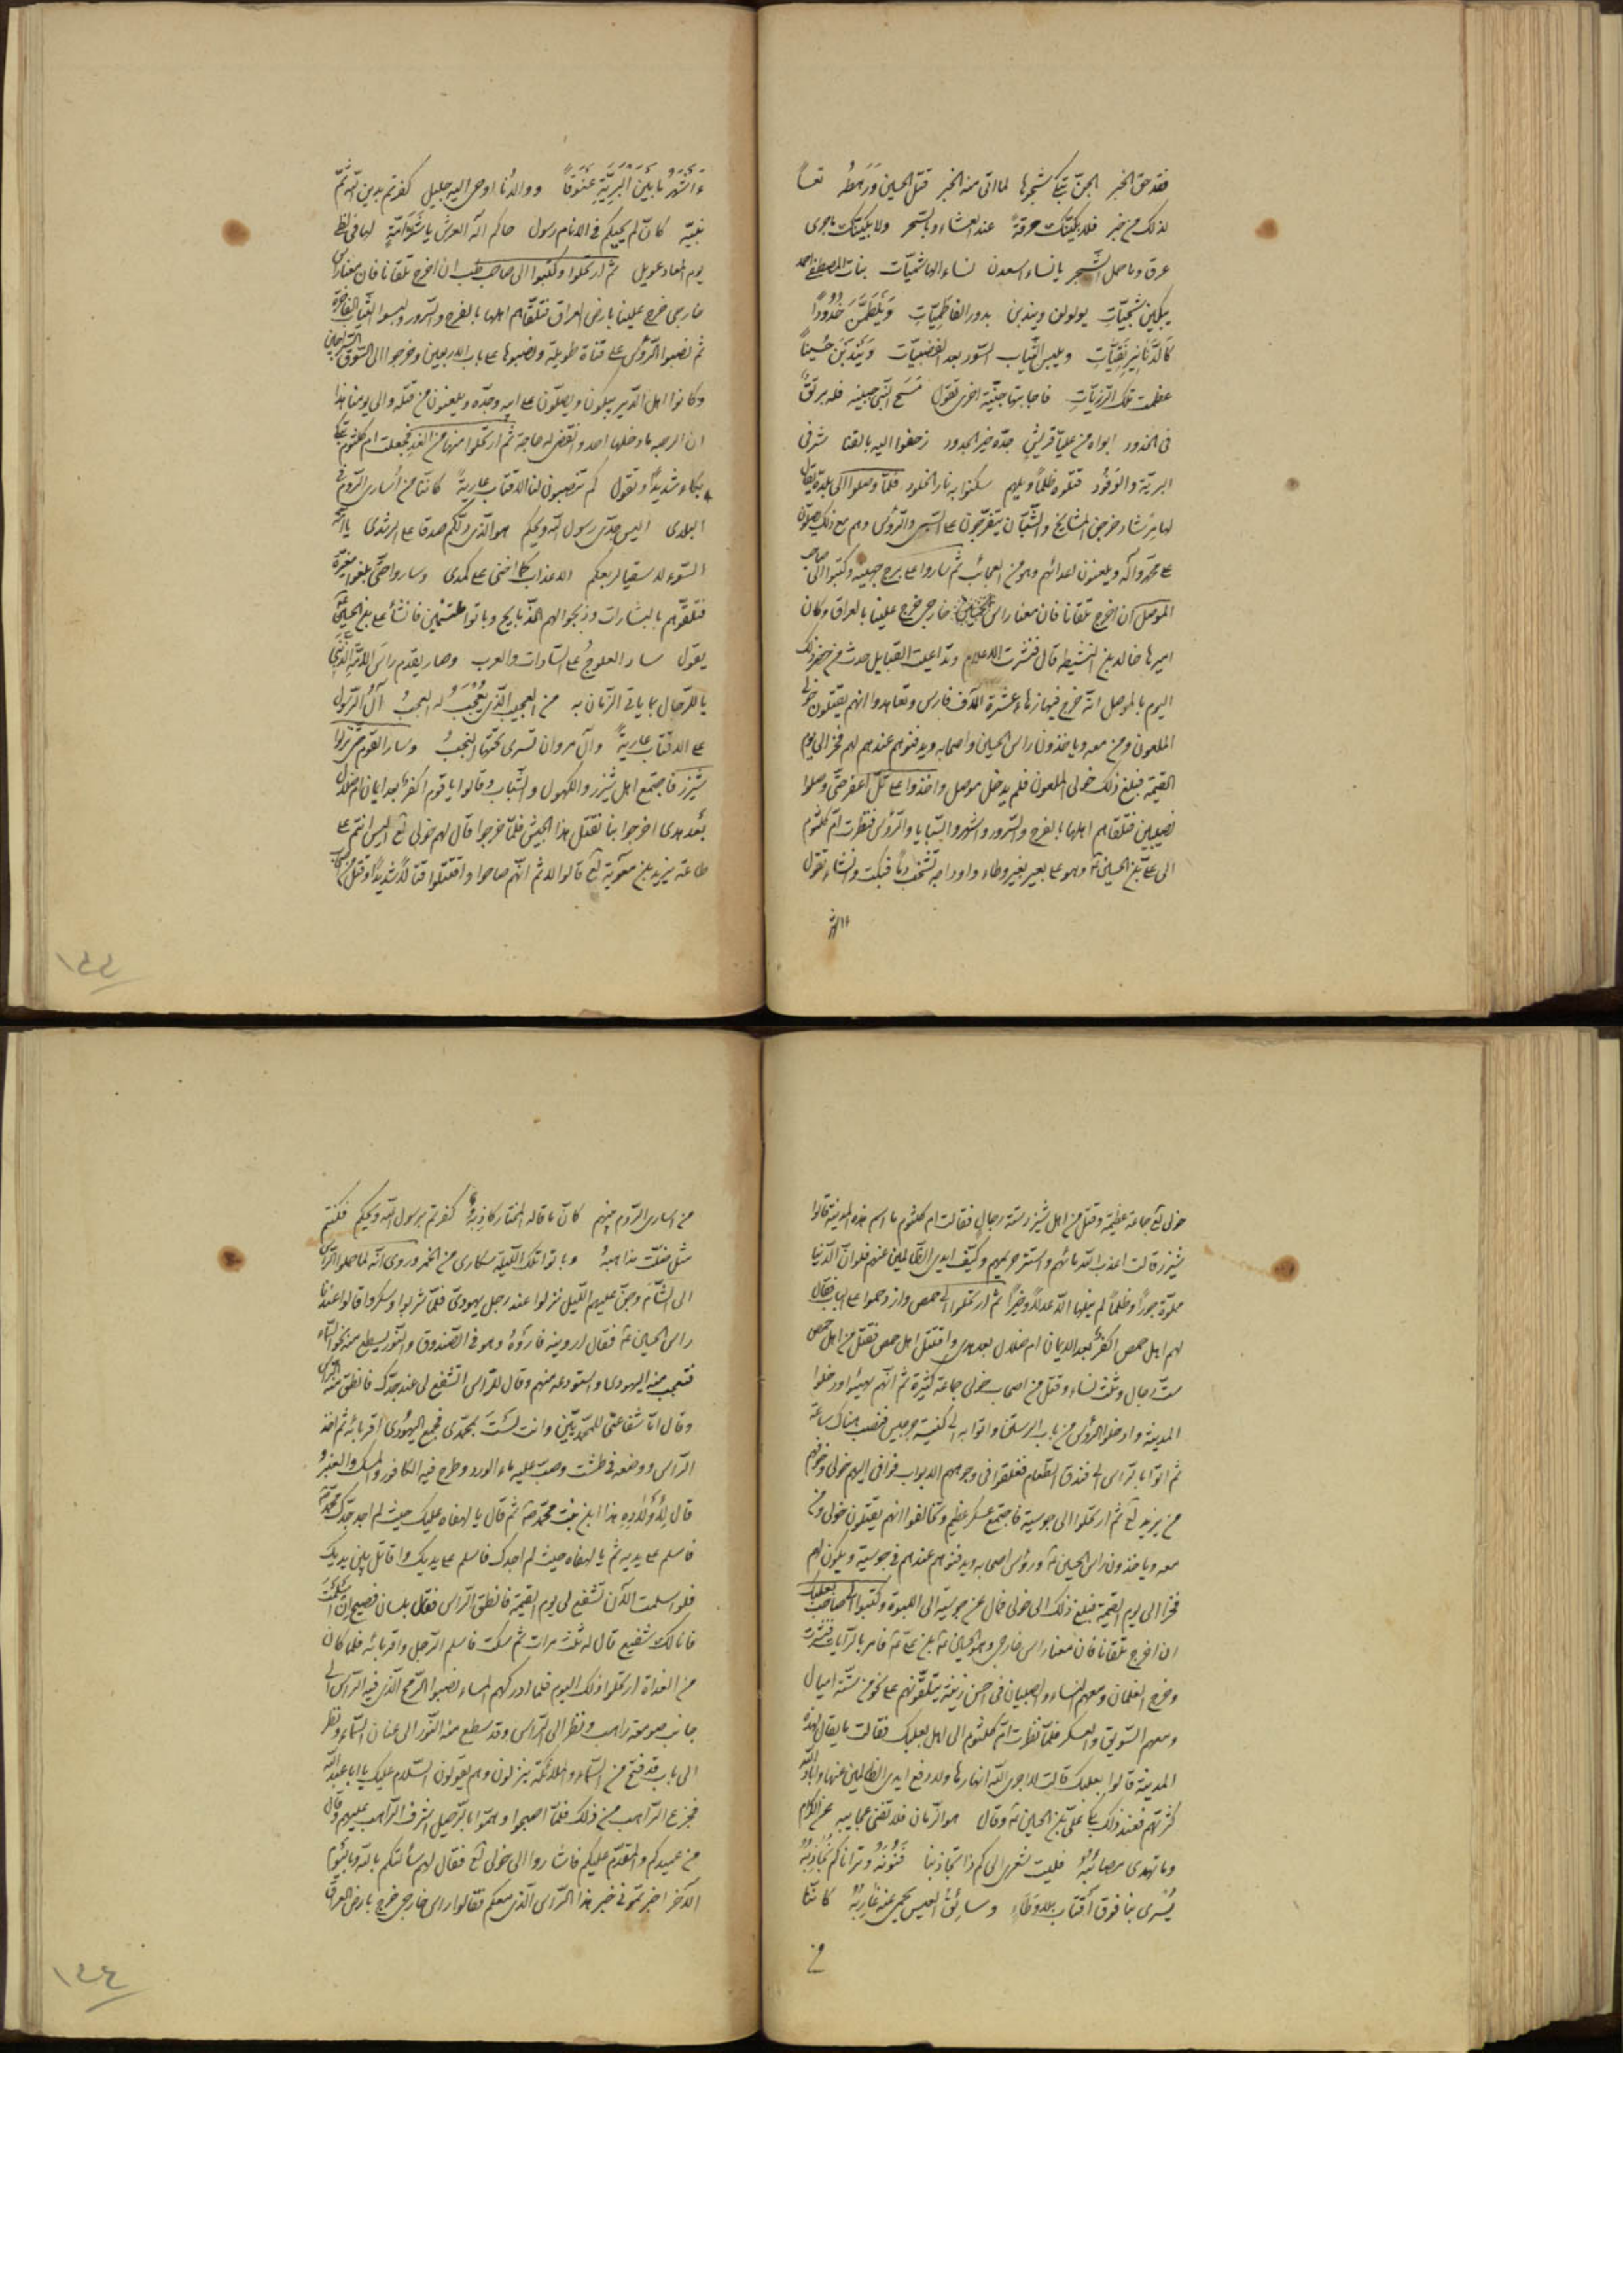 فقد حق الخبر الجن تبكي شجرها لما اتى منه الخبر قتل الحسين ورهطه تعساً
لذلك من خبر فلابكينك حرقةً عند العشاء وبالسحر ولابكينك ما جرى
عرق وما حمل الشجر يا نساء اسعدن نساء الهاشميّات بنات المصطفى احمد
يبكين شجيّات يولولن ويندبن بدور الفاطميّات ويلطمن خدودًا
كالدّنانير نقيّات ويلبسن ثياب السّود بعد القضبيّات ويندبن حسيناً
عظمت تلك الرّزيّات فاجابتها جنّية اخرى تقول مسح النّبى جبينه فله بريق
فى الخدود ابواه من عليا قريش جدّه خير الجدود زحفوا اليه بالقنا شرفى
البريّة والوفود قتلوه ظلماً ويلهم سكنوا به نار الخلود فلمّا وصلوا الى بلدة يقال
لها مرشاد خرجن المشايخ والشّبّان يتفرّجون على السّبى والرّوس وهم مع ذلك يصلون
على محمّد وآله ويلعنون اعدائهم وهو من العجائب ثم ساروا على برج جهينه وكتبوا الى صاحب
الموصل ان اخرج تلقانا فان معنا راس الحسين خارجى خرج علينا بالعراق وكان
اميرها خالد بن النشيط قال فنشرت الاعلام وتداعيت القبايل حدث من حضر ذلك
اليوم بالموصل انّه خرج فيها زهاء عشرة آلاف فارس وتعاهدوا انهم يقتلون خولى
الملعون ومن معه وياخذون راس الحسين واصحابه ويدفنوهم عندهم لهم فخرا الى يوم
القيمة فبلغ ذلك خولى الملعون فلم يدخل موصل واخذوا على تل اعفر حتّى وصلوا
نصيبين فتلقاهم اهلها بالفرح والسّرور واشهروا السّبايا والرّوس فنظرت ام كلثوم
الى على بن الحسين ع وهو على بعير بغير وطاء واوداجه تشخب دماً فبكت وانشات تقول
ءأشهر ما بين البريّة عنوةً ووالدنا اوحى اليه جليل كفرتم بدين اللّه ثمّ
نبيّه كان لم يجيكم فى الانام رسول حاكم اله العرش يا شرّ امّةٍ لها فى لظى
يوم المعاد عويل ثم ارتحلوا وكتبوا الى صاحب حلب ان اخرج تلقانا فان معنا راس
خارجى خرج علينا بارض العراق فتلقّاهم اهلها بالفرح والسّرور ولبسوا الثياب الفاخرة
ثم نصبوا الرّوس على قناة طويلة ونصبوها على باب الاربعين وخرجوا الى السّوق السّراجين
وكانوا اهل الدّير يبكون ويصلّون على ابيه وجدّه ويلعنون من قتله والى يومنا هذا
ان الرحبه ما دخلها احد وانقضى له حاجة ثم ارتحلوا منها من الغد فجعلت ام كلثوم تبكى
بكاء شديدًا وتقول كم تنصبون لنا الاقتاب عاريةً كاننا من أسارى الرّوم فى
البلدى اليس جدّى رسول اللّه ويحكم هو الّذى دلّكم صدقا على الرشدى يا امّة
السّوء لا سقيا لربعكم الا عذابا كما اخنى على كمدى وساروا حتى بلغوا معرّة
فتلقّوهم بالبشارات وذبحوا لهم الذّبايح وباتوا مطمئنين فانشأ على بن الحسين
يقول ساد العلوج على السّادات والعرب وصار يقدم راس الامّة الذّنب
يا للرّجال بما ياتى الزّمان به من العجيب الّذى يُعجب له العجب آل الرّسول
على الاقتاب عاريةً وآل مروان تسرى تحتها النجب وسار القوم حتى نزلوا
شيزر فاجتمع اهل شيزر والكهول والشّباب وقالوا يا قوم اكفرٌ بعد ايمان ام ضلال
بعد هدى اخرجوا بنا نقتل هذا الجيش فلمّا خرجوا قال لهم خولى لع اليس انتم على
طاعة يزيد بن معوية لع قالوا لا ثم انّهم صاحوا واقتتلوا قتالاً شديداً وقتل من اصحاب
١٤٣
خولى لع جماعة عظيمة وقتل من اهل شيزر ستّة رجال فقالت ام كلثوم ما اسم هذه المدينة قالوا
شيزر قالت اعذب اللّه مائهم واستر حريمهم وكيّف ايدى الظالمين عنهم فلو ان الدّنيا
مملوّة جوراً وظلماً لم ينلها الّا عدلاً وخيراً ثم ارتحلوا الى حمص وازدحموا على الباب فقال
لهم اهل حمص اكفرٌ بعد الايمان ام ضلال بعد هدى واقتتل اهل حمص فقتل من اهل حمص
ستّ رجال وثلث نساء وقتل من اصحاب خولى جماعة كثيرة ثم انّهم تهيّئوا ودخلوا
المدينة وادخلوا الرّوس من باب الرستن واتوا به الى كنيسة جرجيس فنصب هناك ساعة
ثم اتوا بالرّاس الى فندق الطّعام فغلقوا فى وجوههم الابواب فوافى اليهم خولى وخوّفهم
من يزيد لع ثم ارتحلوا الى جوسية فاجتمع عسكر عظيم وتحالفوا انهم يقتلون خولى ومن
معه وياخذون راس الحسين ع وروس اصحابه ويدفنوهم عندهم فى جوسية ويكون لهم
فخرًا الى يوم القيمة فبلغ ذلك الى خولى فمال عن جوسية الى اللبوة وكتبوا الى صاحب بعلبك
ان اخرج تلقانا فان معنا راس خارجى وهو الحسين بن على ع فامر بالرّايات فنشرت
وخرج الغلمان ومعهم النساء والصبيان فى احسن زينة يتلقّونهم على نحو من ستّة اميال
ومعهم السّويق والسكر فلمّا نظرت امّ كلثوم الى اهل بعلبك فقالت ما يقال لهذه
المدينة قالوا بعلبك قالت لا اجرى اللّه انهارها ولا دفع ايدى الظالمين عنها واباد اللّه
كثرتهم فعند ذلك بكا علىّ بن الحسين ع وقال هو الزّمان فلا تفنى عجايبه عن الكرام
وما تهدى مصائبه فليت شعرى الى كم ذا تجاذبنا فنونه وترانا كم نجاذبه
يُسرى بنا فوق اقتاب بلا وطاءٍ وسائق العيس يحمى عنه غاربه كانّنا
من
من اسارى الرّوم بينهم كانّ ما قاله المختار كاذبه كفرتم برسول اللّه ويحكم فكنتم
مثل ضلّت مذاهبه وباتوا تلك اللّيلة سكارى من الخمر وروى انّه لما حملوا الرّاس
الى الشّام وجنّ عليهم الليل نزلوا عند رجل يهودىّ فلمّا شربوا وسكروا قالوا عندنا
راس الحسين ع فقال ارونيه فاروهُ وهو فى الصّندوق والنّور يسطع منه نحو السّماء
فتعجب منه اليهودى واستودعه منهم وقال للرّاس اشفع لى عند جدّك فانطق منه الرّاس
وقال انّما شفاعتى للمحمّديّين وانت لستَ بمحمّدى فجمع اليهودى اقربائه ثم اخذ
الرّاس ووضعه فى طشت وصبّ عليه ماء الورد وطرح فيه الكافور والمسك والعنبر و
قال لأولاده هذا ابن بنت محمّد ص ثم قال يا لهفاه عليك حيث لم اجد جدّك محمّد ص
فاسلم على يديه ثم يا لهفاه حيث لم اجدك فاسلم على يديك واقاتل بين يديك
فلو اسلمت الآن تشفع لى يوم القيمة فانطق الرّاس فقال بلسان فصيح ان اسلمت
فانا لك شفيع قال له ثلث مرات ثم سكت فاسلم الرّجل واقربائه فلما كان
من الغداة ارتحلوا ذلك اليوم فلما ادركهم المساء نصبوا الرّمح الّذى فيه الرّاس الى
جانب صومعة راهب ونظر الى الرّاس وقد سطع منه النّور الى عنان السّماء ونظر
الى باب قد فتح من السّماء والملائكة ينزلون وهم يقولون السّلام عليك يا ابا عبد اللّه
فجزع الرّاهب من ذلك فلمّا اصبحوا وهمّوا بالرّحيل اشرف الرّاهب عليهم وقال
من عميدكم والمقدّم عليكم فاشاروا الى خولى لع فقال لهم سألتكم باللّه وباليوم
الآخر اخبرتمونى خبر هذا الرّاس الّذى معكم فقالوا راس خارجى خرج بارض العراق
١٤٤